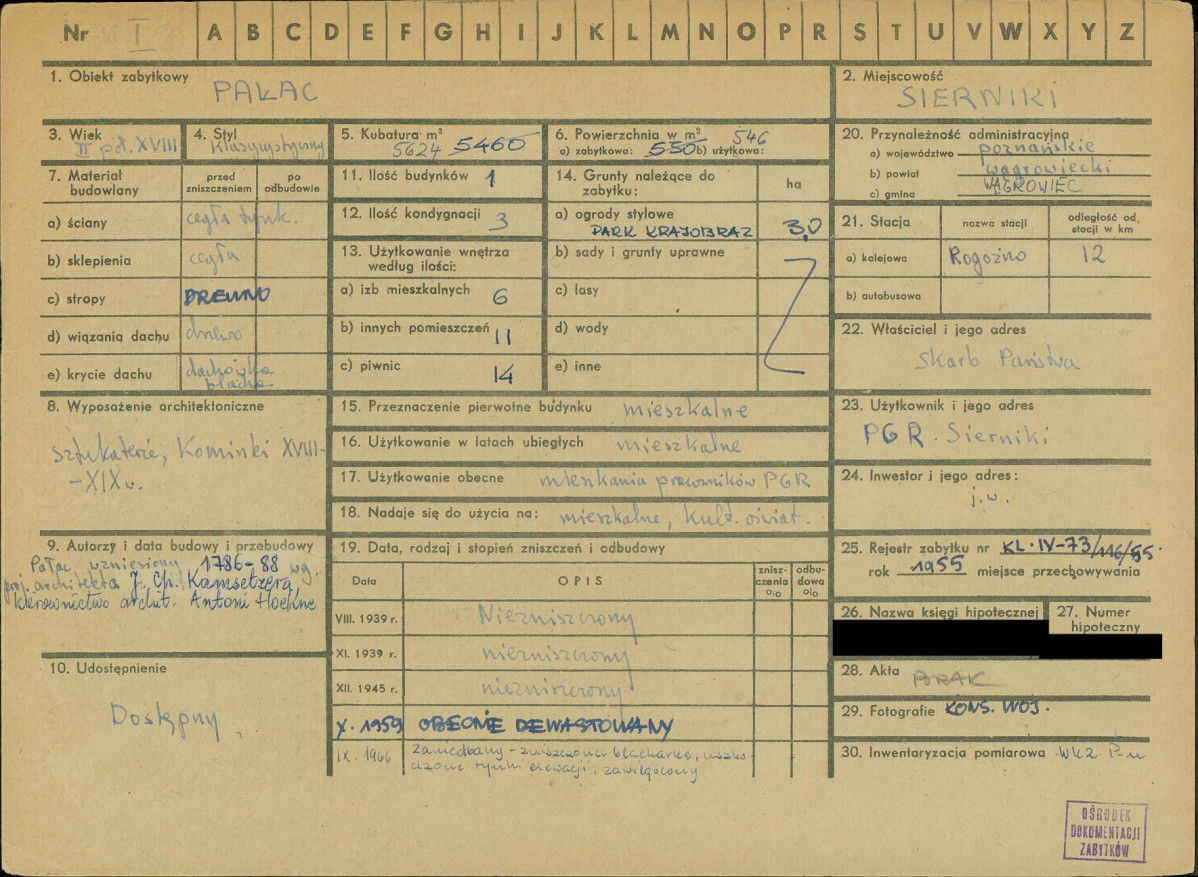 Nr I A B C D E F G H I J K L M N O P R S T U V W X Y Z
1. Obiekt zabytkowy
PAŁAC
2. Miejscowość
SIERNIKI
3. Wiek
II poł. XVIII
4. Styl
Klasycystyczny
5. Kubatura m³
5624 5460
6. Powierzchnia w m² 546
a) zabytkowa: 550 b) użytkowa:
20. Przynależność administracyjna
a) województwo poznańskie
b) powiat wągrowiecki
c) gmina WĄGROWIEC
7. Materiał budowlany
przed zniszczeniem
po odbudowie
a) ściany cegła tynk.
b) sklepienia cegła
c) stropy DREWNO
d) wiązania dachu drewo
e) krycie dachu dachówka
blacha
11. Ilość budynków 1
12. Ilość kondygnacji 3
13. Użytkowanie wnętrza
według ilości:
a) izb mieszkalnych 6
b) innych pomieszczeń 11
c) piwnic 14
14. Grunty należące do
zabytku:
ha
a) ogrody stylowe
PARK KRAJOBRAZ 3,0
b) sady i grunty uprawne
c) lasy
d) wody
e) inne
21. Stacja
nazwa stacji
odległość od.
stacji w km
a) kolejowa Rogoźno 12
b) autobusowa
22. Właściciel i jego adres
Skarb Państwa
8. Wyposażenie architektoniczne
Sztukaterie, Kominki XVIII-
-XIX w.
15. Przeznaczenie pierwotne budynku mieszkalne
16. Użytkowanie w latach ubiegłych mieszkalne
17. Użytkowanie obecne mieszkania pracowników PGR
18. Nadaje się do użycia na: mieszkalne, kult. oświat.
23. Użytkownik i jego adres
PGR. Sierniki
24. Inwestor i jego adres:
j.w.
9. Autorzy i data budowy i przebudowy
Pałac wzniesiony 1786-88 wg.
proj. architekta J. Ch. Kamsetzera,
kierownictwo archit. Antoni Hoehne
10. Udostępnienie
Dostępny
19. Data, rodzaj i stopień zniszczeń i odbudowy
Data
OPIS
znisz-
czenia
o|o
odbu-
dowa
o|o
VIII. 1939 r. Niezniszczony
XI. 1939 r. niezniszczony
XII. 1945 r. niezniszczony
X. 1959 OBECNIE DEWASTOWANY
IX. 1966 Zaniedbany - zniszczona blacharka, uszko-
dzone tynki elewacji, zawilgocony
25. Rejestr zabytku nr KL.IV-73/116/55.
rok 1955 miejsce przechowywania
26. Nazwa księgi hipotecznej
27. Numer
hipoteczny
28. Akta BRAK
29. Fotografie KONS. WOJ.
30. Inwentaryzacja pomiarowa WKZ P-ń
OŚRODEK
DOKUMENTACJI
ZABYTKÓW